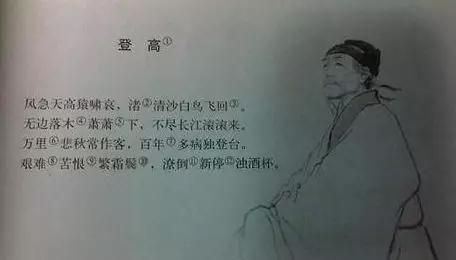 登 高①
风急天高猿啸哀，渚②清沙白鸟飞回③。
无边落木④萧萧⑤下，不尽长江滚滚来。
万里⑥悲秋常作客，百年⑦多病独登台。
艰难⑧苦恨⑨繁霜鬓⑩，潦倒⑪新停⑫浊酒杯。